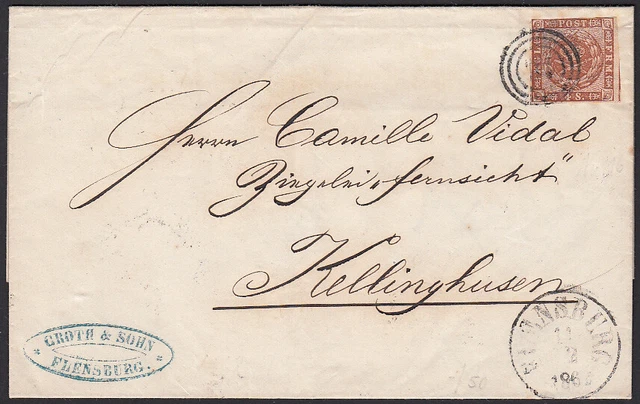 K.G.L. POST FRM.
4 S.
Herrn Camille Vidal
Ziegelei „Fernsicht"
Kellinghusen
GROTH & SOHN
FLENSBURG.
FLENSBURG
11
2
186
50